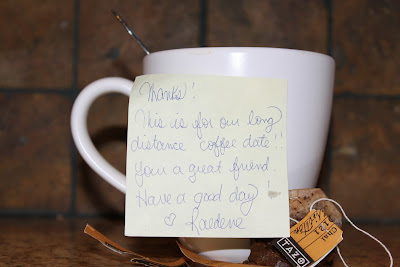 Thanks!
This is for our long
distance coffee date!!
Your a great friend.
Have a good day!
♡ Raedene
TAZO